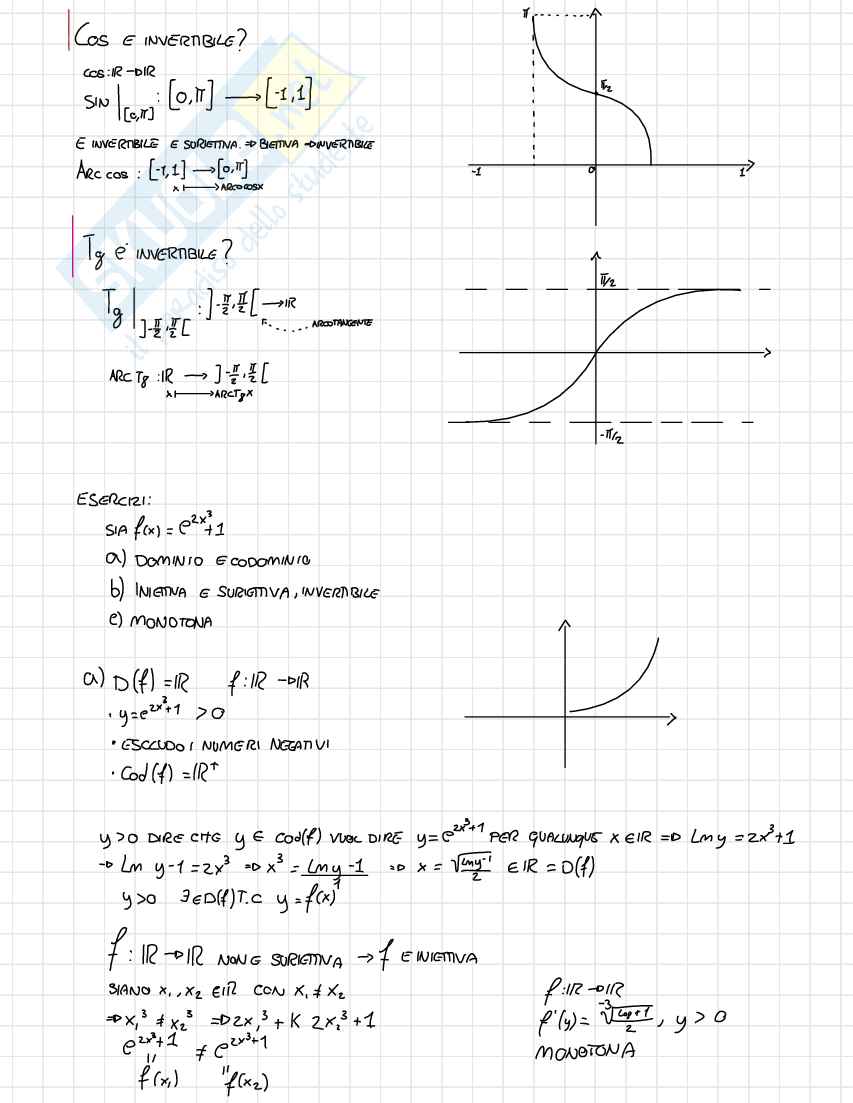 COS E INVERTIBILE?
COS:IR→IR
SIN|[0,π] : [0,π] → [-1,1]
E INVERTIBILE E SURIETTIVA. ⇒ BIETTIVA → INVERTIBILE
ARCCOS : [-1,1] → [0,π]
x ↦ ARCOCOSX
π
π/2
-1
0
1
Tg e' INVERTIBILE?
Tg|]-π/2,π/2[ : ]-π/2,π/2[ → IR
ARCOTANGENTE
ARCTg : IR → ]-π/2,π/2[
x ↦ ARCTgx
π/2
-π/2
ESERCIZI:
SIA f(x) = e^{2x³+1}
a) DOMINIO E CODOMINIO
b) INIETTIVA E SURIETTIVA, INVERTIBILE
c) MONOTONA
a) D(f) = IR f: IR → IR
· y=e^{2x³+1} >0
· ESCLUDO I NUMERI NEGATIVI
· Cod(f) = IR⁺
y>0 DIRE CHE y ∈ Cod(f) VUOL DIRE y=e^{2x³+1} PER QUALUNQUE X ∈ IR ⇒ Ln y = 2x³+1
→ Ln y-1 = 2x³ ⇒ x³ = Ln y -1 ⇒ x = √(Ln y-1)/2 ∈ IR = D(f)
y>0 ∃ ∈ D(f) T.C y = f(x)
f: IR → IR NON E SURIETTIVA → f E INIETTIVA
SIANO x₁,x₂ ∈ IR CON x₁ ≠ x₂
⇒ x₁³ ≠ x₂³ ⇒ 2x₁³ + K 2x₂³ + 1
e^{2x³+1} ≠ e^{2x³+1}
" "
f(x₁) f(x₂)
f: IR → IR
y > 0
MONOTONA
SKUOLA.net
il paradiso dello studente